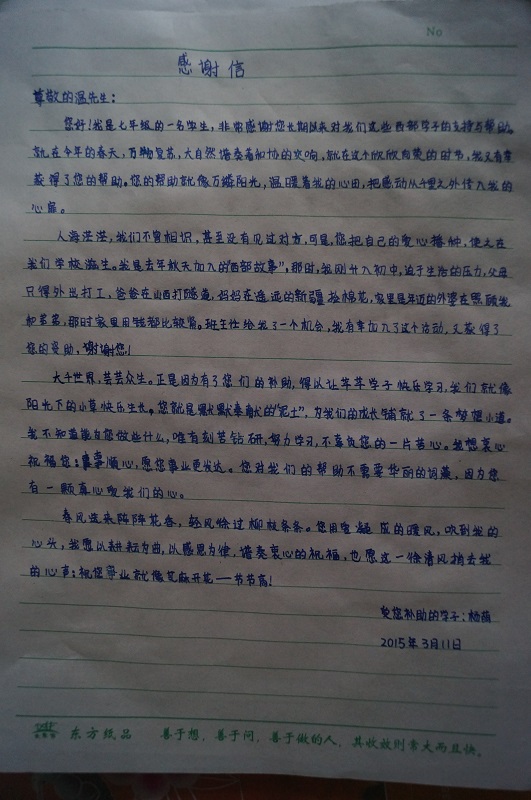 No
感谢信
尊敬的温先生:
您好!我是七年级的一名学生,非常感谢您长期以来对我们这些西部学子的支持与帮助。
就在今年的春天,万物复苏,大自然谱奏着和协的交响,就在这个欣欣向荣的时节,我又有幸
获得了您的帮助。您的帮助就像万缕阳光,温暖着我的心田,把感动从千里之外传入我的
心扉。
人海茫茫,我们不曾相识,甚至没有见过对方,可是,您把自己的爱心播种,使之在
我们学校滋生。我是去年秋天加入的"西部故事",那时,我刚升入初中,迫于生活的压力,父母
只得外出打工,爸爸在山西打隧道,妈妈在遥远的新疆捡棉花,家里是年迈的外婆在照顾我
和弟弟,那时家里用钱都比较紧。班主任给我了一个机会,我有幸加入了这个活动,又获得了
您的资助,谢谢您!
大千世界,芸芸众生。正是因为有了您们的补助,得以让莘莘学子快乐学习,我们就像
阳光下的小草快乐生长。您就是默默奉献的"泥土",为我们的成长铺就了一条梦想小道。
我不知道能为您做些什么,唯有刻苦钻研,努力学习,不辜负您的一片苦心。我想衷心
祝福您:事事顺心,愿您事业更发达。您对我们的帮助不需要华丽的词藻,因为您
有一颗真心爱我们的心。
春风送来阵阵花香,轻风徐过柳枝条条。您用爱凝成的暖风,吹到我的
心头,我愿以耕耘为曲,以感恩为律,谱奏衷心的祝福,也愿这一徐清风捎去我
的心声:祝您事业就像芝麻开花——节节高!
受您补助的学子:杨萌
2015年3月11日
东方纸品 善于想,善于问,善于做的人,其收效则常大而且快。